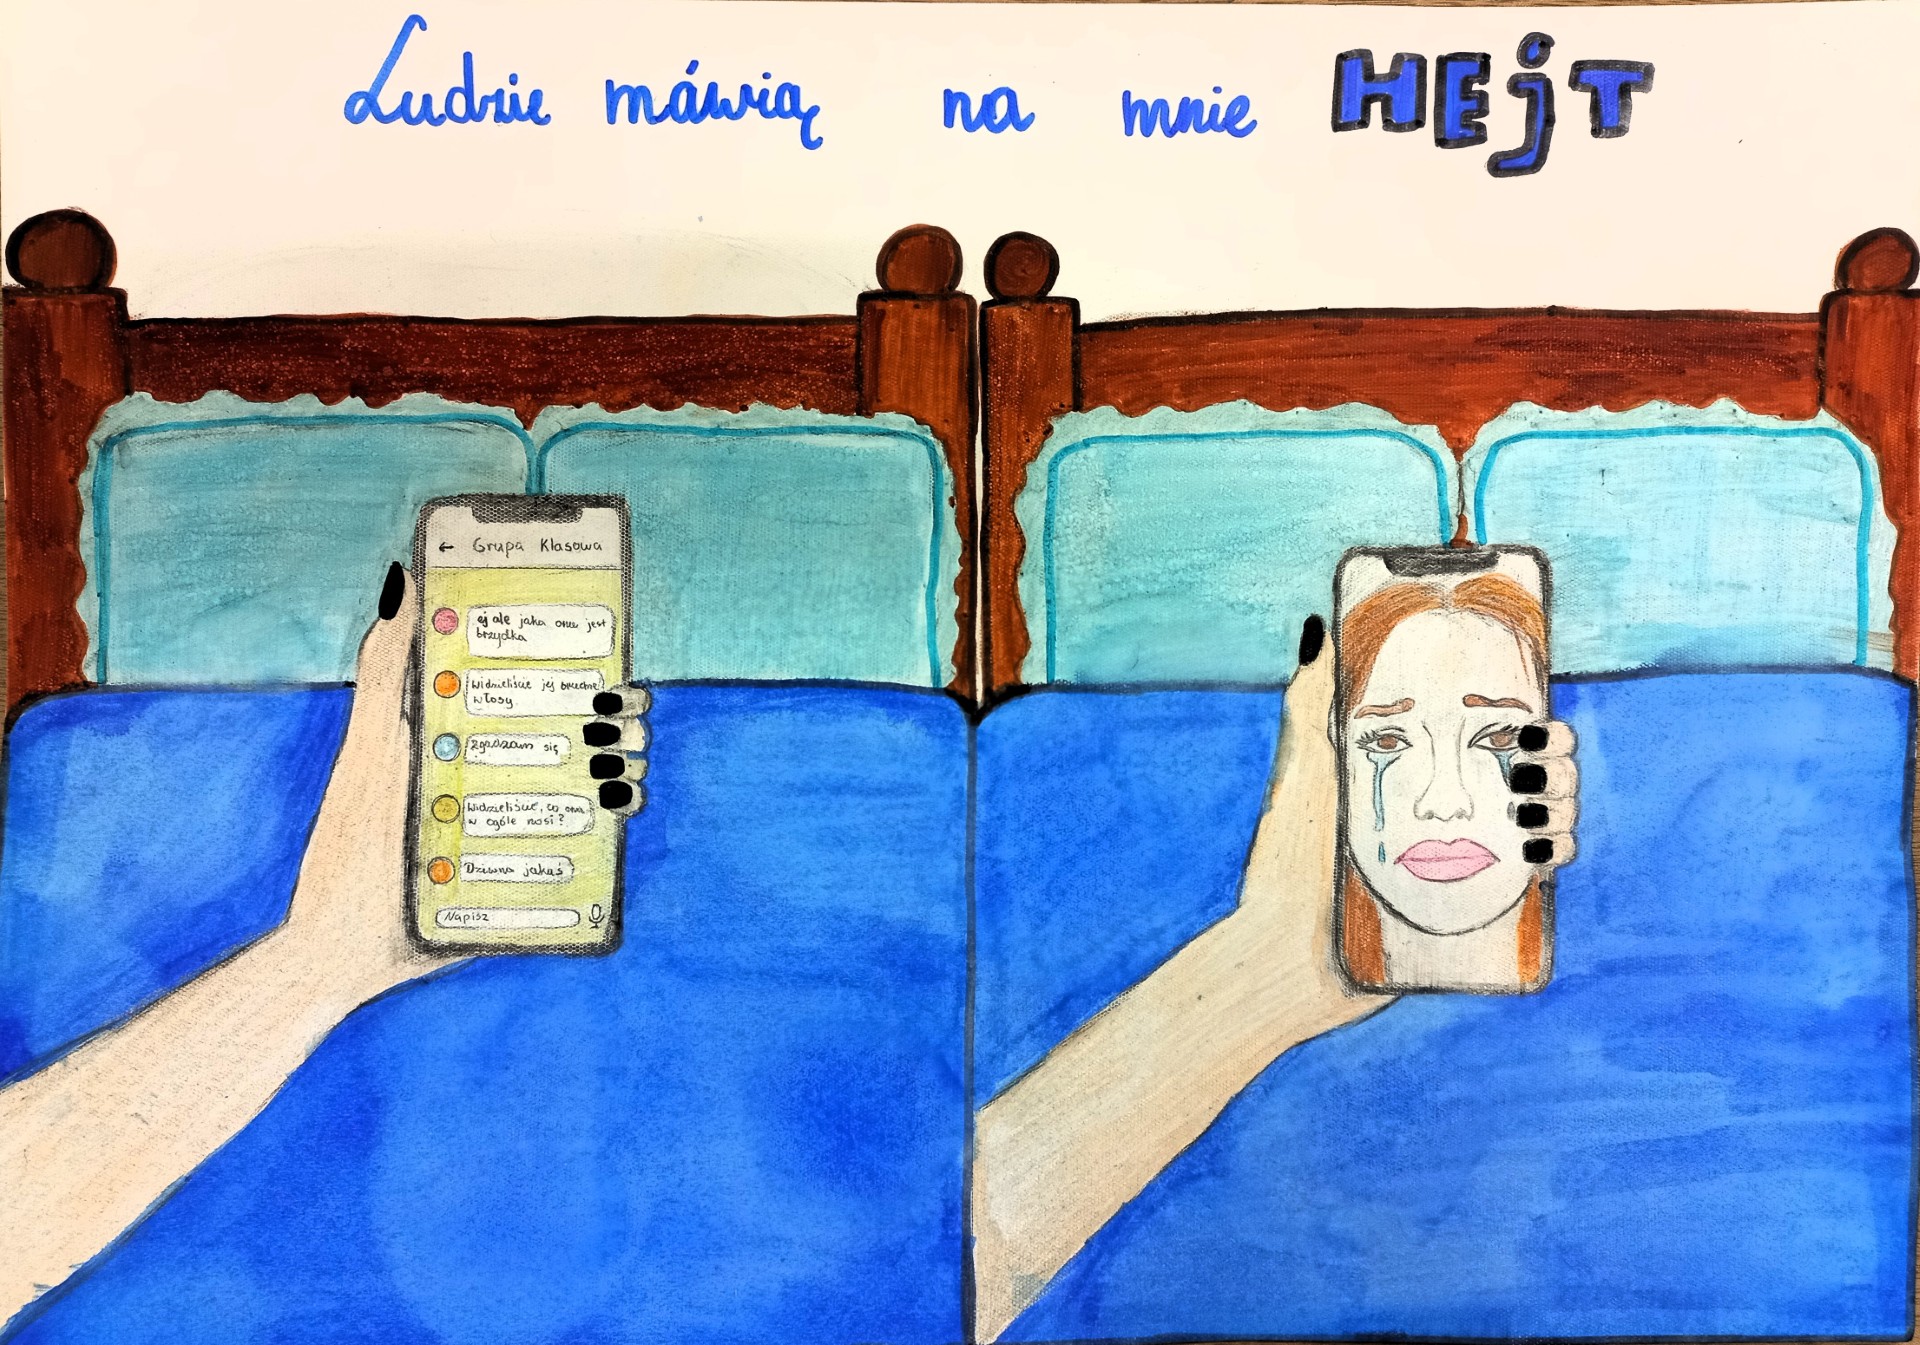 Ludzie máwią na mnie HEjT
← Grupa Klasowa
ej ale jaka ona jest
brzydka
Widzieliście jej
włosy.
Zgadzam się
Widzieliście, co ona
w ogóle nosi?
Dziwna jakaś
Napisz